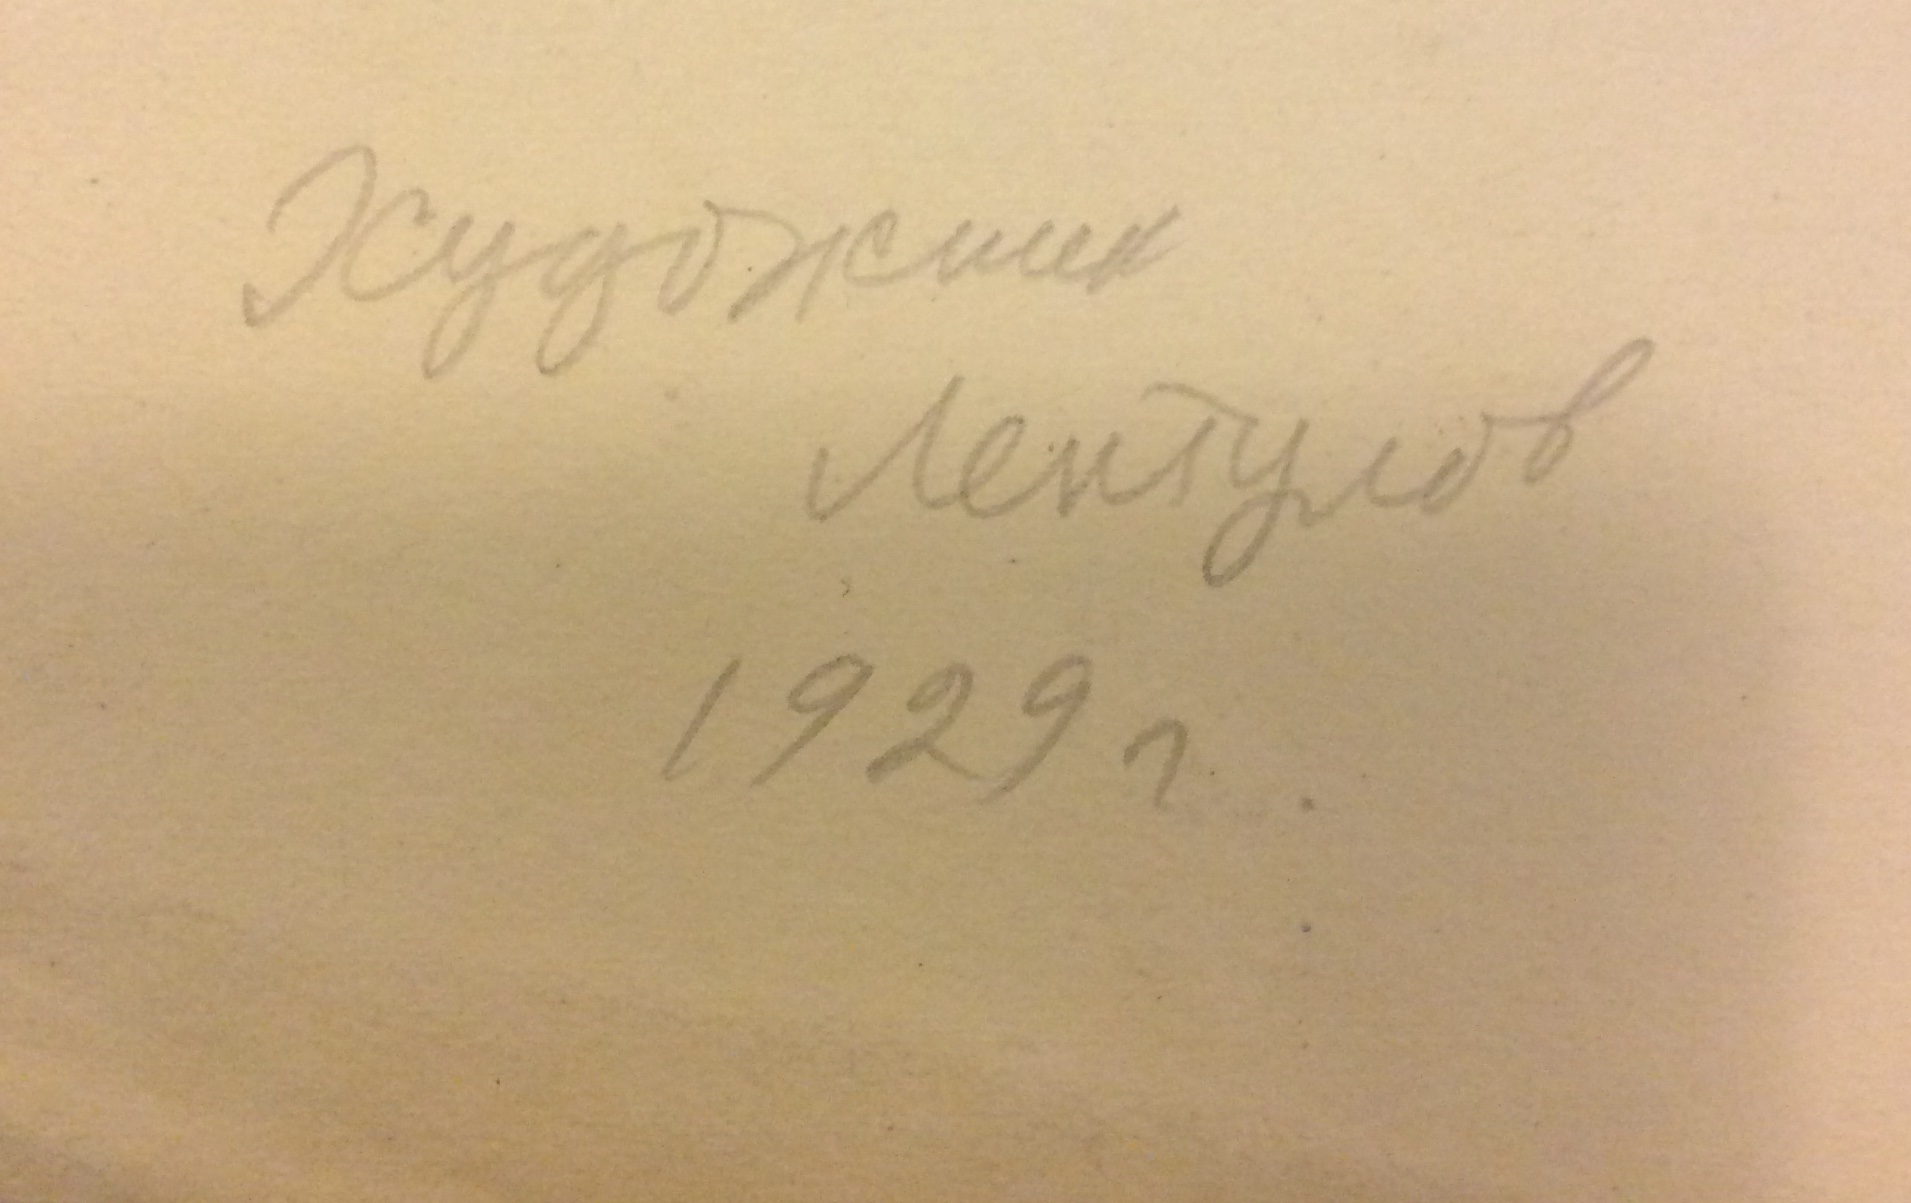 Художник
Лентулов
1929 г.